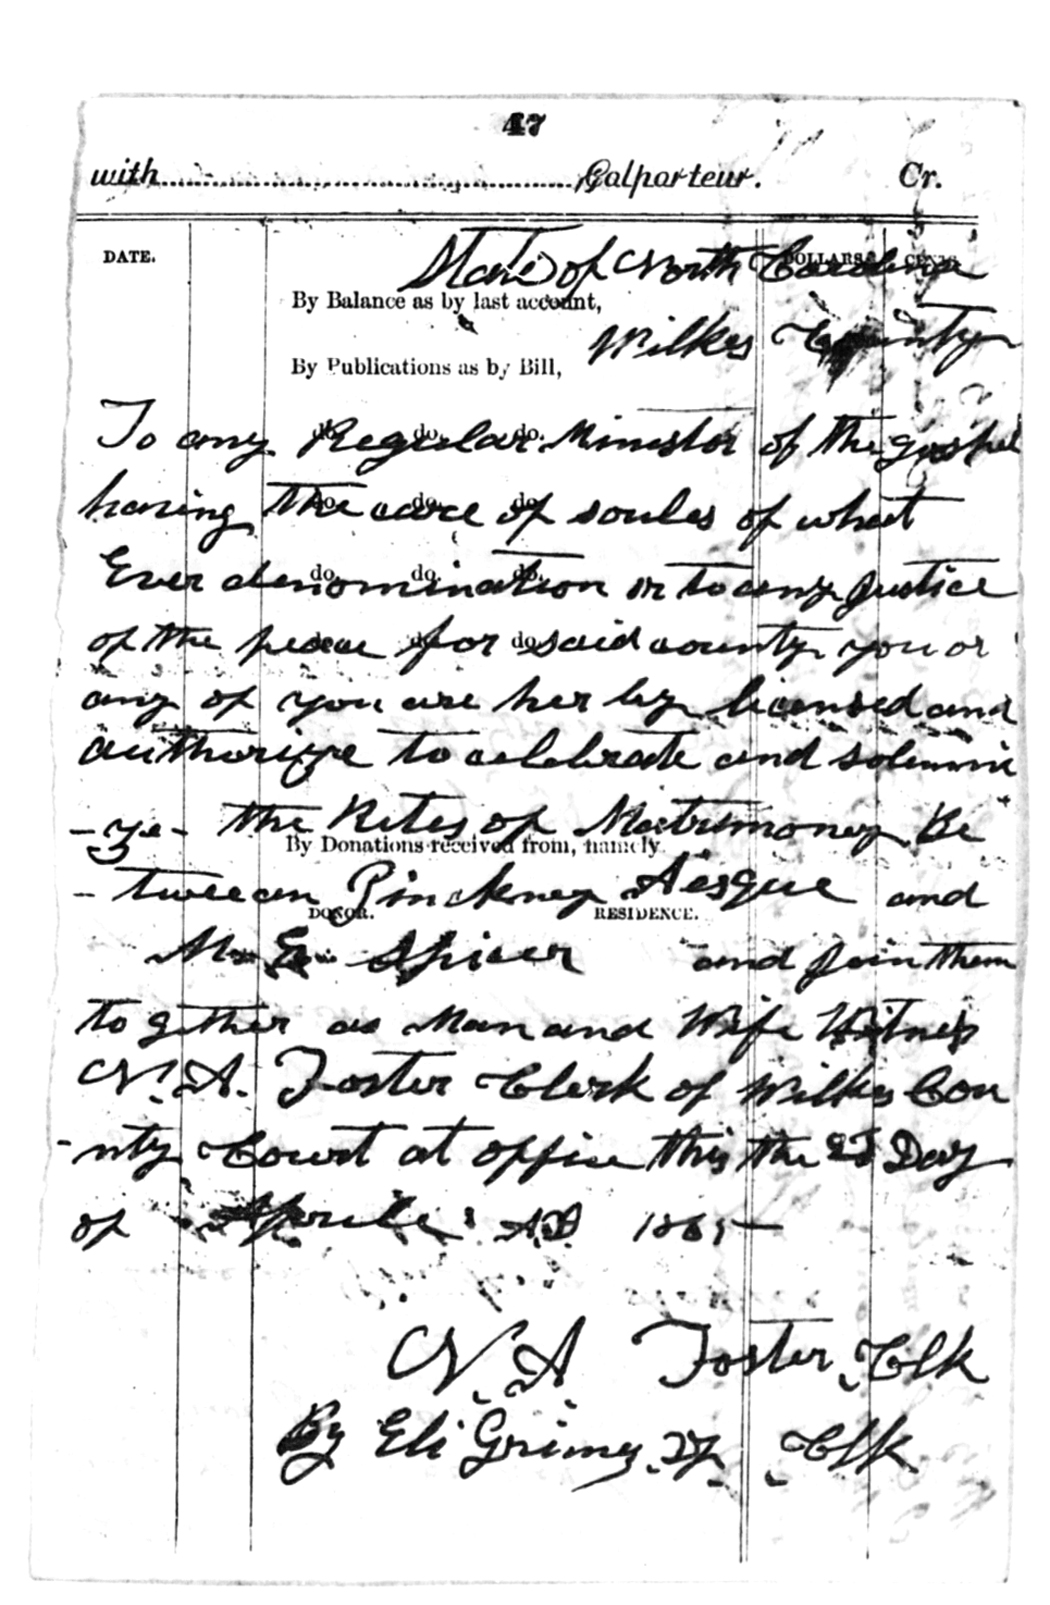 47
with Colporteur. Cr.
DATE. DOLLARS. CENTS.
State of North Carolina
By Balance as by last account,
Wilkes County
By Publications as by Bill,
To any Regular Minister of the gospel
do. do. do.
having the care of soules of what
do. do. do.
Ever denomination or to any Justice
do. do. do.
of the peace for said county you or
do. do. do.
any of you are her by licensed and
authorize to celebrate and solemni
-ze- the Rites of Matrimoney Be
By Donations received from, namely
-tweean Pinckney and
DONOR. RESIDENCE.
M. E. Spicer and Join them
to gether as Man and Wife Witness
N. A. Foster Clerk of Wilkes Cou
-nty Court at office this the Day
of Aprile AD 1865
N. A Foster Clk
By Eli Grimes Dy Clk